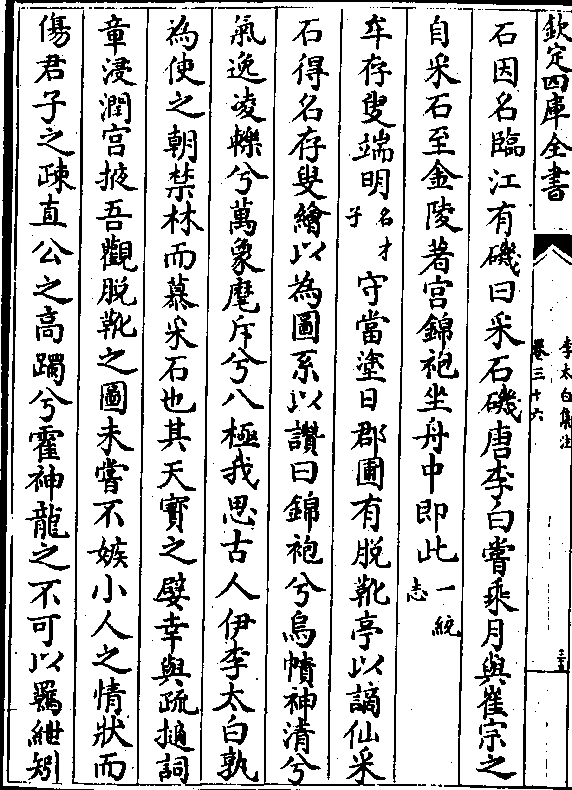 欽定四庫全書
李太白集注
卷三十六
三
石因名臨江有磯曰采石磯唐李白嘗乘月與崔宗之
自采石至金陵著宫錦袍坐舟中即此一統志
牟存叟端明名子才守當塗日郡圃有脱靴亭以謫仙采
石得名存叟繪以為圖系以讃曰錦袍兮烏幘神清兮
氣逸凌轢兮萬象麾斥兮八極我思古人伊李太白孰
為使之朝禁林而慕采石也其天寳之嬖幸與疏擿詞
章浸潤宫掖吾觀脱靴之圖未嘗不嫉小人之情状而
傷君子之疎直公之高躅兮霍神龍之不可以羈紲矧